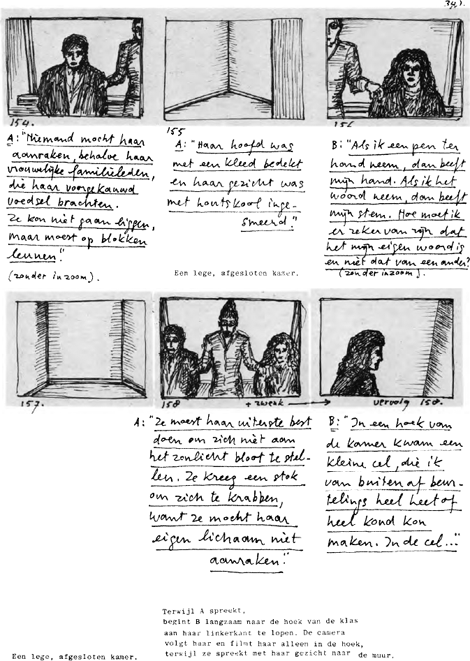 34).
154.
A: "Niemand mocht haar
aanraken, behalve haar
vrouwelijke familieleden,
die haar voorgekauwd
voedsel brachten.
Ze kon niet gaan liggen,
maar moest op blokken
leunen."
(zonder inzoom).
155
A: "Haar hoofd was
met een kleed bedekt
en haar gezicht was
met houtskool inge-
smeerd."
Een lege, afgesloten kamer.
156
B: "Als ik een pen ter
hand neem, dan beeft
mijn hand. Als ik het
woord neem, dan beeft
mijn stem. Hoe moet ik
er zeker van zijn dat
het mijn eigen woord is
en niet dat van een ander?
(zonder inzoom).
157.
Een lege, afgesloten kamer.
158
+ zwenk
A: "Ze moest haar uiterste best
doen om zich niet aan
het zonlicht bloot te stel-
len. Ze kreeg een stok
om zich te krabben,
want ze mocht haar
eigen lichaam niet
aanraken."
Terwijl A spreekt,
begint B langzaam naar de hoek van de klas
aan haar linkerkant te lopen. De camera
volgt haar en filmt haar alleen in de hoek,
terwijl ze spreekt met haar gezicht naar de muur.
vervolg 158.
B: "In een hoek van
de kamer kwam een
kleine cel, die ik
van buiten af beur-
telings heel heet of
heel koud kon
maken. In de cel..."